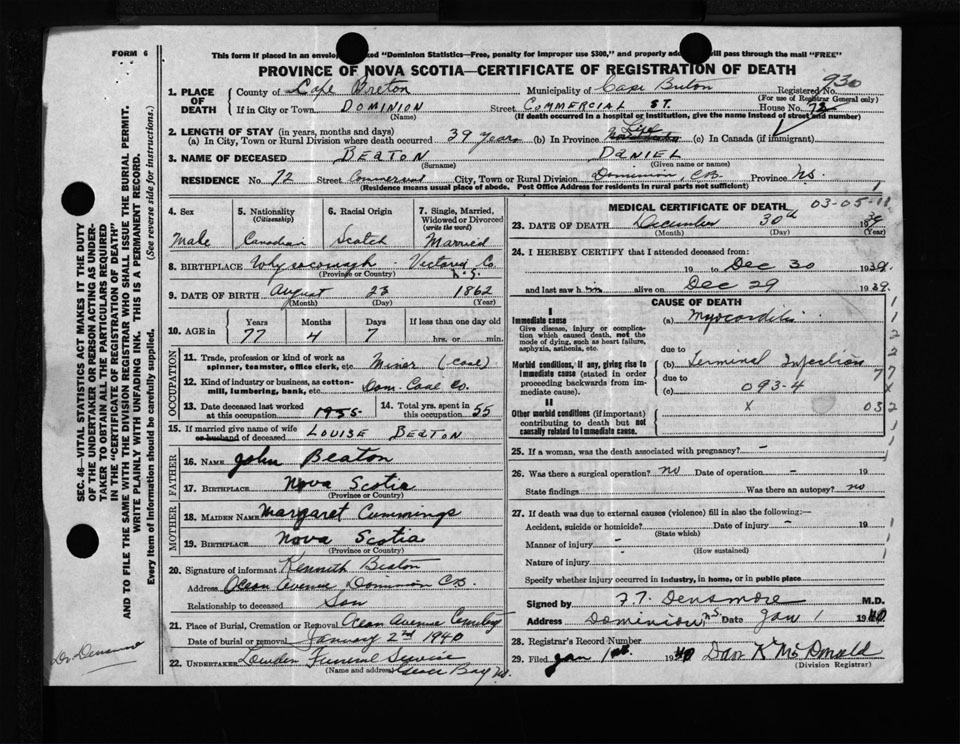 FORM 6
This form if placed in an envelo ked "Dominion Statistics—Free, penalty for improper use $300," and properly add will pass through the mail "FREE"
PROVINCE OF NOVA SCOTIA—CERTIFICATE OF REGISTRATION OF DEATH
930
1. PLACE OF DEATH
County of Cape Breton Municipality of Cape Breton Registered No.
(For use of Registrar General only)
If in City or Town DOMINION Street COMMERCIAL ST. House No. 72
(Name) (If death occurred in a hospital or institution, give the name instead of street and number)
2. LENGTH OF STAY (in years, months and days)
(a) In City, Town or Rural Division where death occurred 39 years (b) In Province Life (c) In Canada (if immigrant)
3. NAME OF DECEASED BEATON DANIEL
(Surname) (Given name or names)
RESIDENCE No. 72 Street Commercial City, Town or Rural Division Dominion, C.B. Province N.S.
(Residence means usual place of abode. Post Office Address for residents in rural parts not sufficient)
4. Sex 5. Nationality (Citizenship) 6. Racial Origin 7. Single, Married, Widowed or Divorced (write the word)
Male Canadian Scotch Married
8. BIRTHPLACE Whycocomagh - Victoria Co. N.S.
(Province or Country)
9. DATE OF BIRTH August 23 1862
(Month) (Day) (Year)
10. AGE in Years Months Days If less than one day old
77 4 7 hrs. or min.
OCCUPATION
11. Trade, profession or kind of work as spinner, teamster, office clerk, etc. Miner (Coal)
12. Kind of industry or business, as cotton-mill, lumbering, bank, etc. Dom. Coal Co.
13. Date deceased last worked at this occupation
14. Total yrs. spent in this occupation 55
15. If married give name of wife or husband of deceased LOUISE BEATON
FATHER
16. NAME John Beaton
17. BIRTHPLACE Nova Scotia
(Province or Country)
MOTHER
18. MAIDEN NAME Margaret Cummings
19. BIRTHPLACE Nova Scotia
(Province or Country)
20. Signature of informant Kenneth Beaton
Address Ocean Avenue Dominion C.B.
Relationship to deceased Son
21. Place of Burial, Cremation or Removal Ocean Avenue Cemetery
Date of burial or removal January 2nd 1940
22. UNDERTAKER Lowden Funeral Service
(Name and address) Glace Bay N.S.
MEDICAL CERTIFICATE OF DEATH
03-05-11
23. DATE OF DEATH December 30th 1939
(Month) (Day) (Year)
24. I HEREBY CERTIFY that I attended deceased from:
19 to Dec 30 1939.
and last saw him alive on Dec 29 1939.
CAUSE OF DEATH
I
Immediate cause
Give disease, injury or complication which caused death, not the mode of dying, such as heart failure, asphyxia, asthenia, etc.
(a) Myocarditis
due to
Morbid conditions, if any, giving rise to immediate cause (stated in order proceeding backwards from immediate cause).
(b) Terminal Infection
due to
(c) 093-4
II
Other morbid conditions (if important) contributing to death but not causally related to immediate cause.
x 032
25. If a woman, was the death associated with pregnancy? -
26. Was there a surgical operation? no Date of operation - 19
State findings Was there an autopsy? no
27. If death was due to external causes (violence) fill in also the following:—
Accident, suicide or homicide? - Date of injury - 19
(State which)
Manner of injury -
(How sustained)
Nature of injury -
Specify whether injury occurred in industry, in home, or in public place
Signed by F.T. Densmore M.D.
Address Dominion N.S. Date Jan 1 1940
28. Registrar's Record Number
29. Filed Jan 1st 1940 Dan K McDonald
(Division Registrar)
SEC. 46—VITAL STATISTICS ACT MAKES IT THE DUTY OF THE UNDERTAKER OR PERSON ACTING AS UNDERTAKER TO OBTAIN ALL THE PARTICULARS REQUIRED IN THE "CERTIFICATE OF REGISTRATION OF DEATH"
AND TO FILE THE SAME WITH THE DIVISION REGISTRAR WHO SHALL ISSUE THE BURIAL PERMIT.
WRITE PLAINLY WITH UNFADING INK. THIS IS A PERMANENT RECORD.
Every item of information should be carefully supplied. (See reverse side for instructions.)
Dr. Densmore